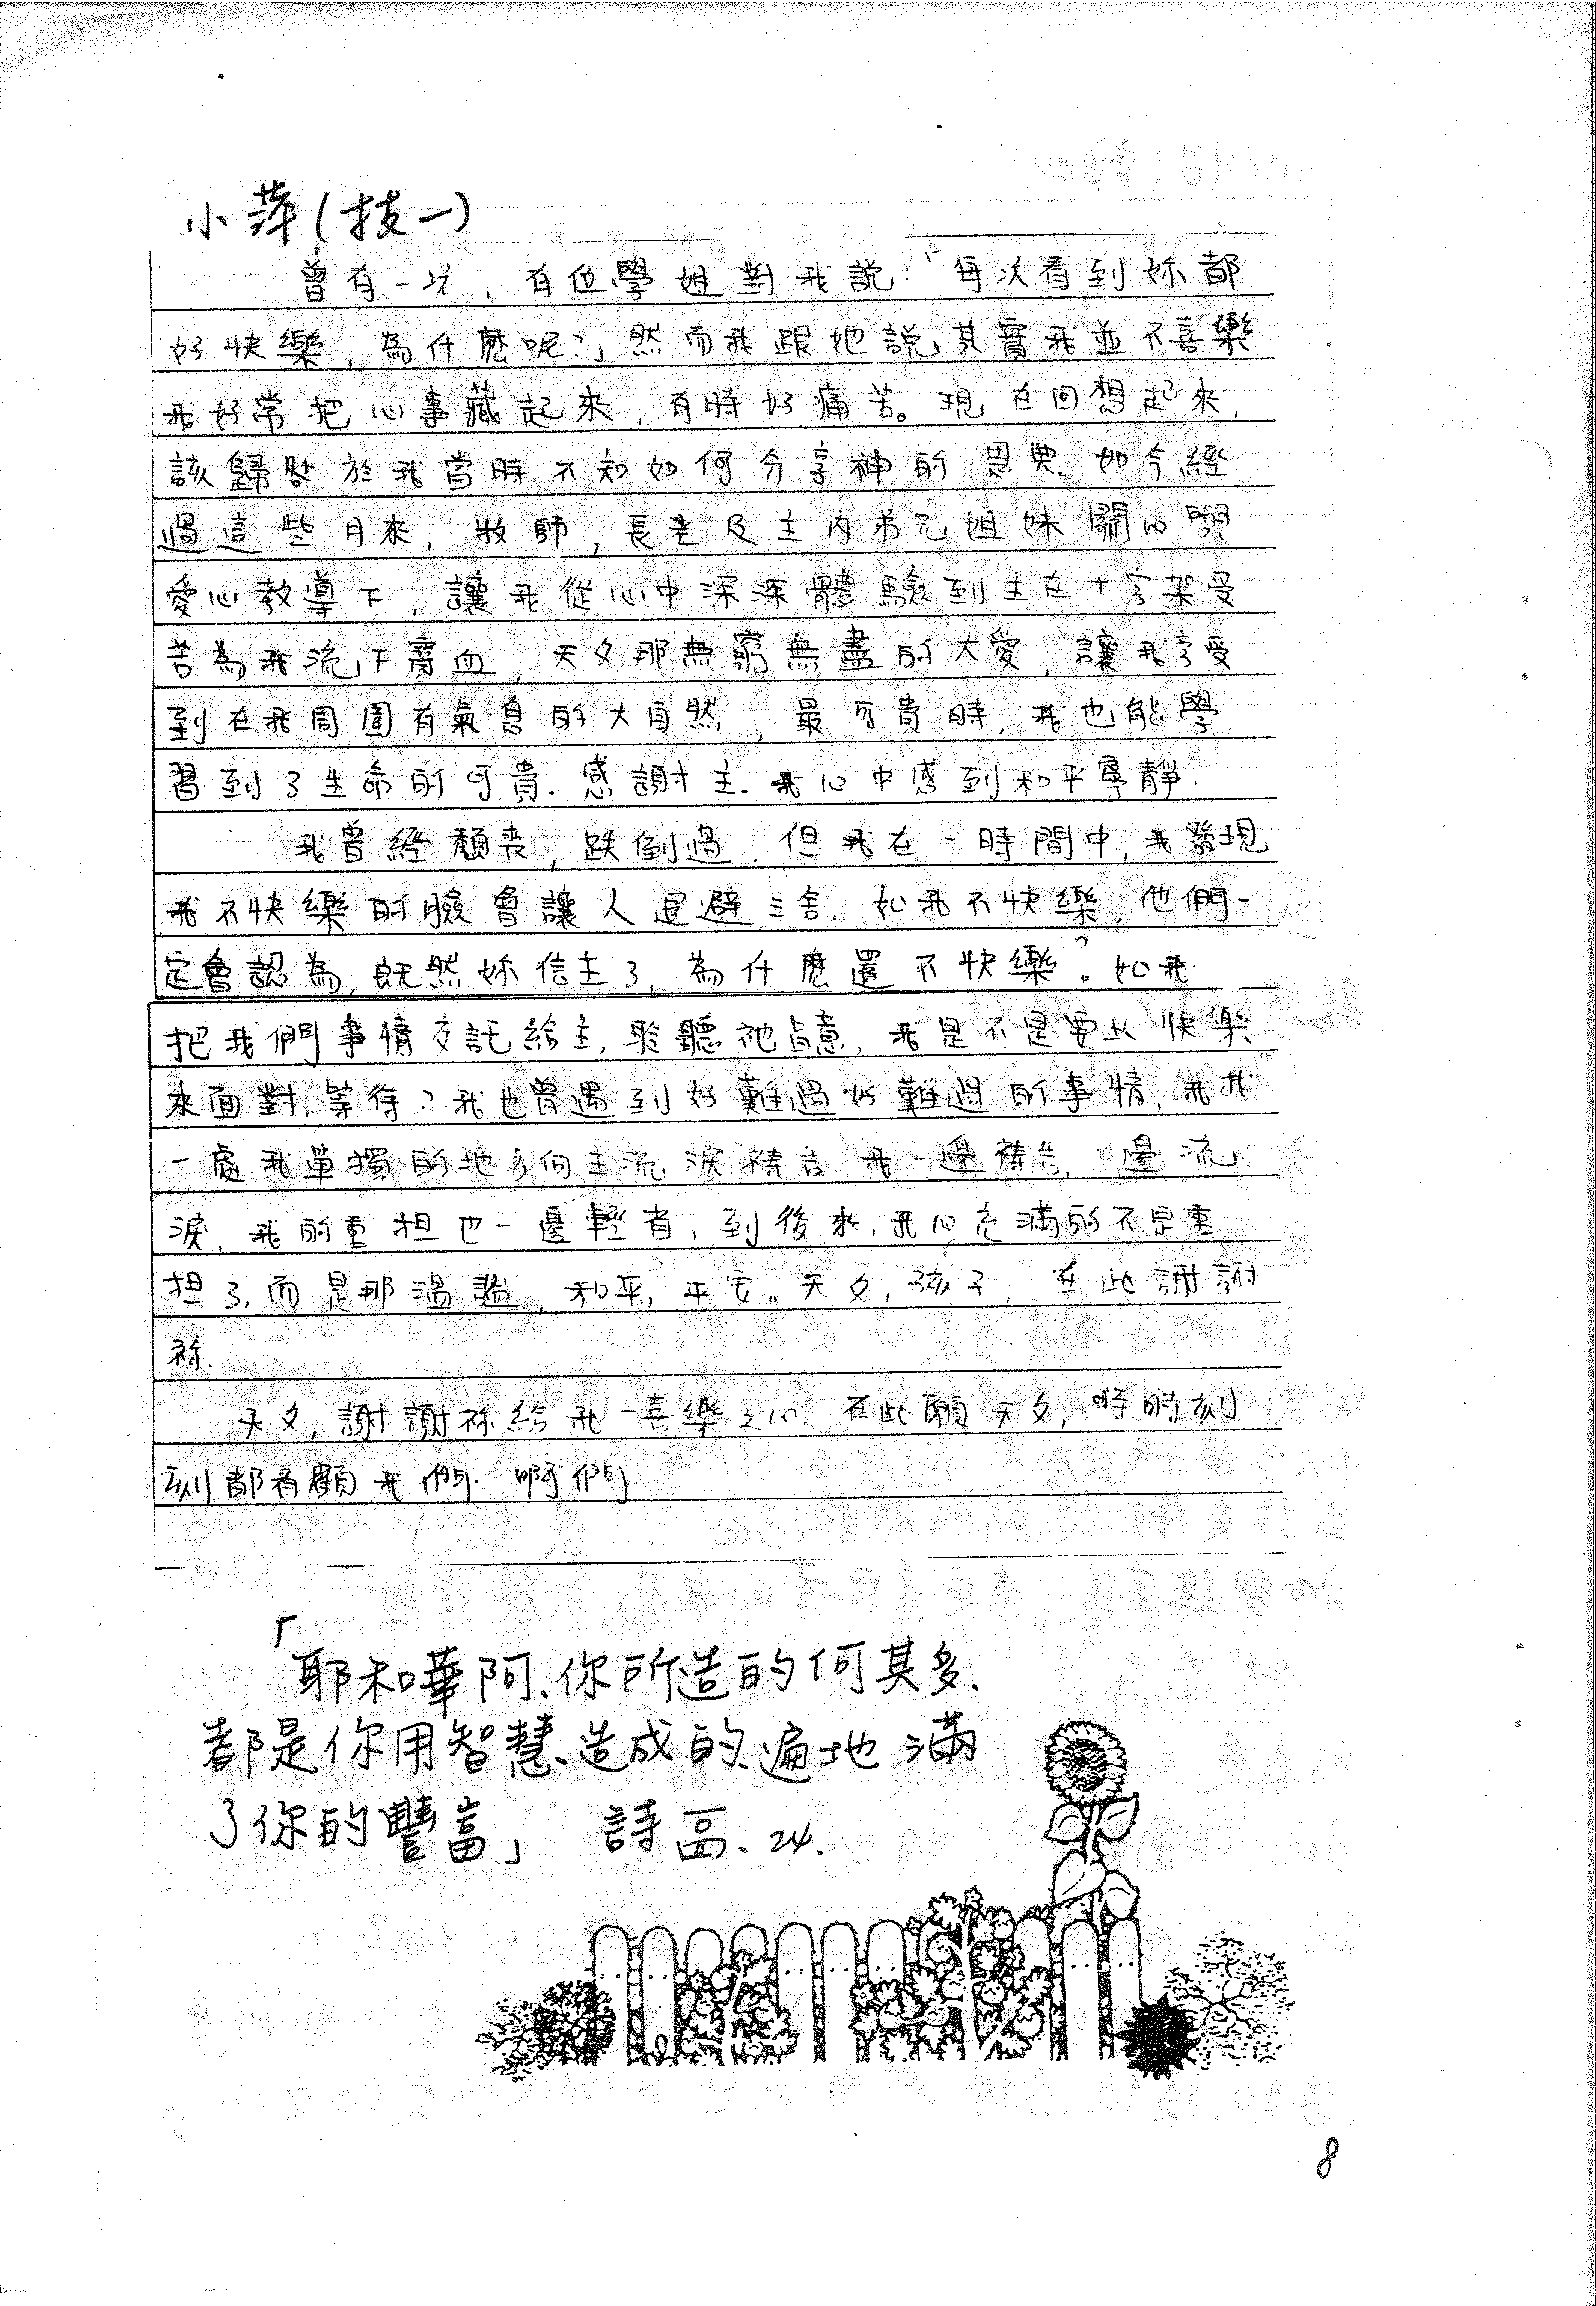 小萍(技一)
曾有一次，有位學姐對我說：「每次看到妳都
好快樂，為什麼呢？」然而我跟她說，其實我並不喜樂
我好常把心事藏起來，有時好痛苦。現在回想起來，
該歸咎於我當時不知如何分享神的恩典。如今經
過這些月來，牧師，長老及主內弟兄姐妹關心與
愛心教導下，讓我從心中深深體驗到主在十字架受
苦為我流下寶血，天父那無窮無盡的大愛，讓我享受
到在我周圍有氣息的大自然，最可貴時，我也能學
習到了生命的可貴．感謝主．我心中感到和平寧靜．
我曾經頹喪，跌倒過．但我在一時間中，我發現
我不快樂的臉會讓人退避三舍．如我不快樂，他們一
定會認為，既然妳信主了，為什麼還不快樂？。如我
把我們事情交託給主，聆聽祂旨意，我是不是要以快樂
來面對，等待？我也曾遇到好難過好難過的事情，我找
一處我單獨的地方向主流淚禱告．我一邊禱告，一邊流
淚．我的重担也一邊輕省，到後來，我心充滿的不是重
担了，而是那溫謐，和平，平安。天父，孩子，在此謝謝
祢．
天父，謝謝祢給我一喜樂之心．在此願天父，時時刻
刻都看顧我們．啊們
「耶和華阿、你所造的何其多、
都是你用智慧造成的、遍地滿
了你的豐富」 詩一〇四、24、
8